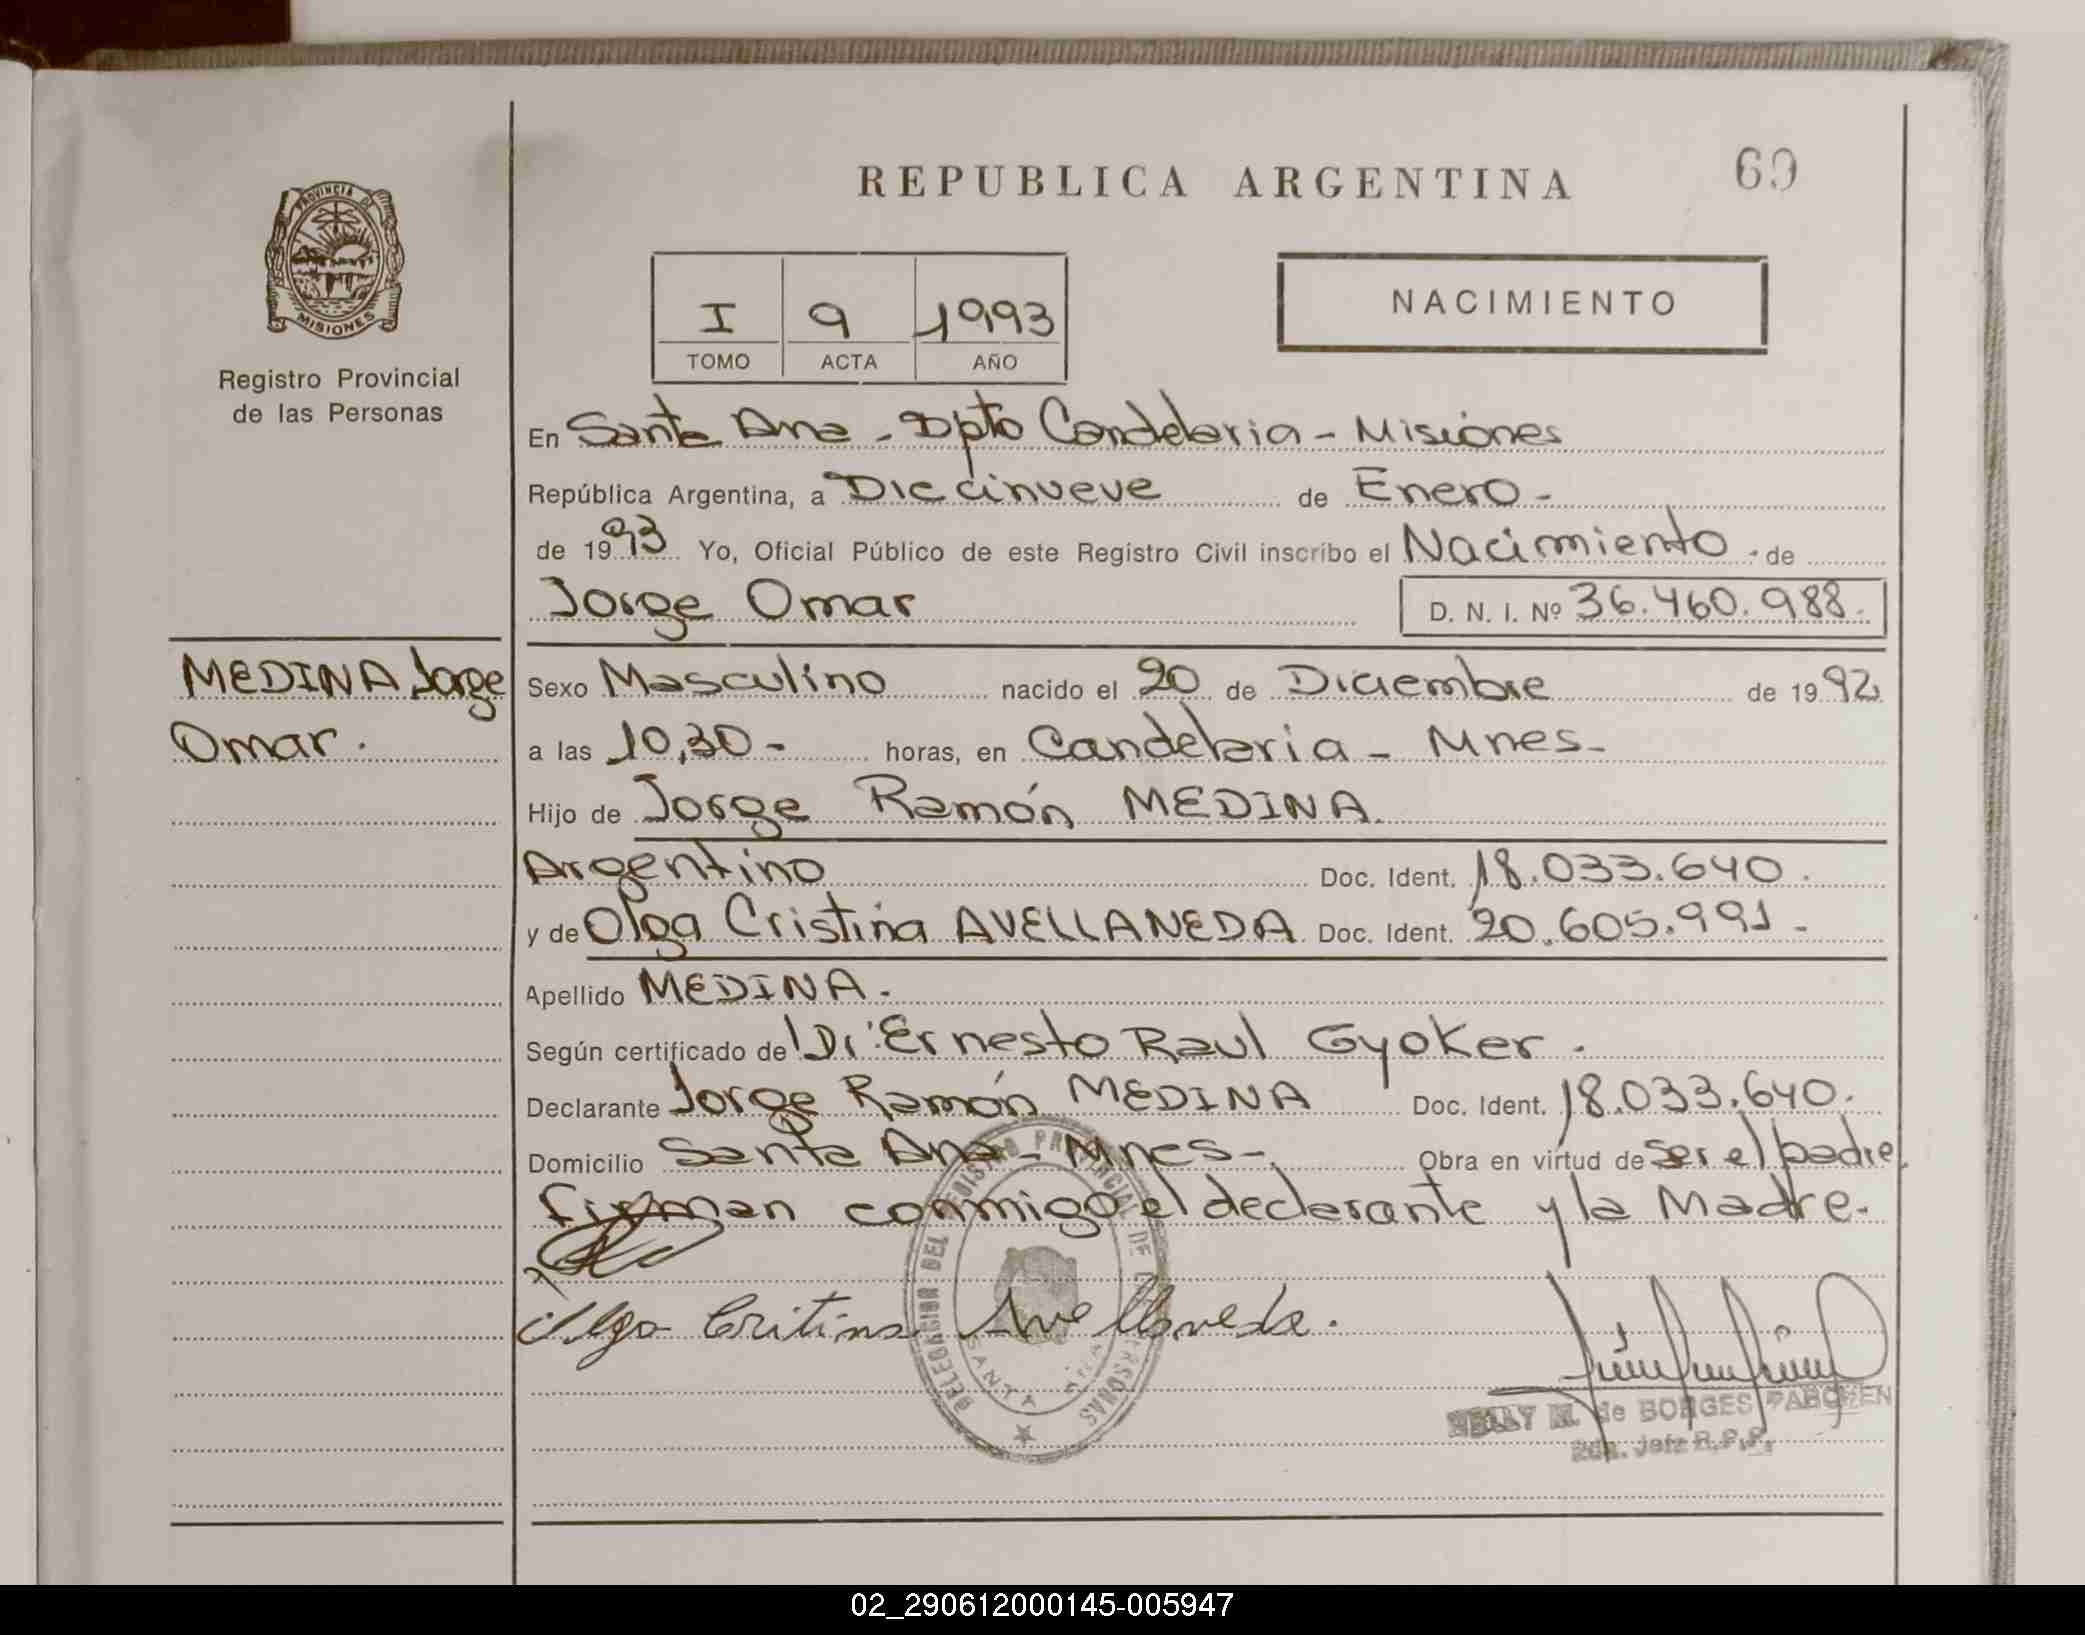 REPUBLICA ARGENTINA
69
PROVINCIA DE
MISIONES
Registro Provincial
de las Personas
I 9 1993
TOMO ACTA AÑO
NACIMIENTO
En Santa Ana - Dpto Candelaria - Misiones
República Argentina, a Diecinueve de Enero -
de 1993 Yo, Oficial Público de este Registro Civil inscribo el Nacimiento - de
Jorge Omar D. N. I. Nº 36.460.988.
MEDINA Jorge
Omar.
Sexo Masculino nacido el 20 de Diciembre de 1992
a las 10,30 - horas, en Candelaria - Mnes -
Hijo de Jorge Ramón MEDINA.
Argentino Doc. Ident. 18.033.640.
y de Olga Cristina AVELLANEDA. Doc. Ident. 20.605.991 -
Apellido MEDINA.
Según certificado de Dr: Ernesto Raul Gyoker.
Declarante Jorge Ramón MEDINA Doc. Ident. 18.033.640.
Domicilio Santa Ana - Mnes -. Obra en virtud de ser el padre.
firman conmigo el declarante y la Madre.
Olga Critina Avellaneda.
DELEGACION DEL REGISTRO PROVINCIAL DE PERSONAS
SANTA ANA
NELLY M. de BORGES
Jefe R.P.P.
02_290612000145-005947